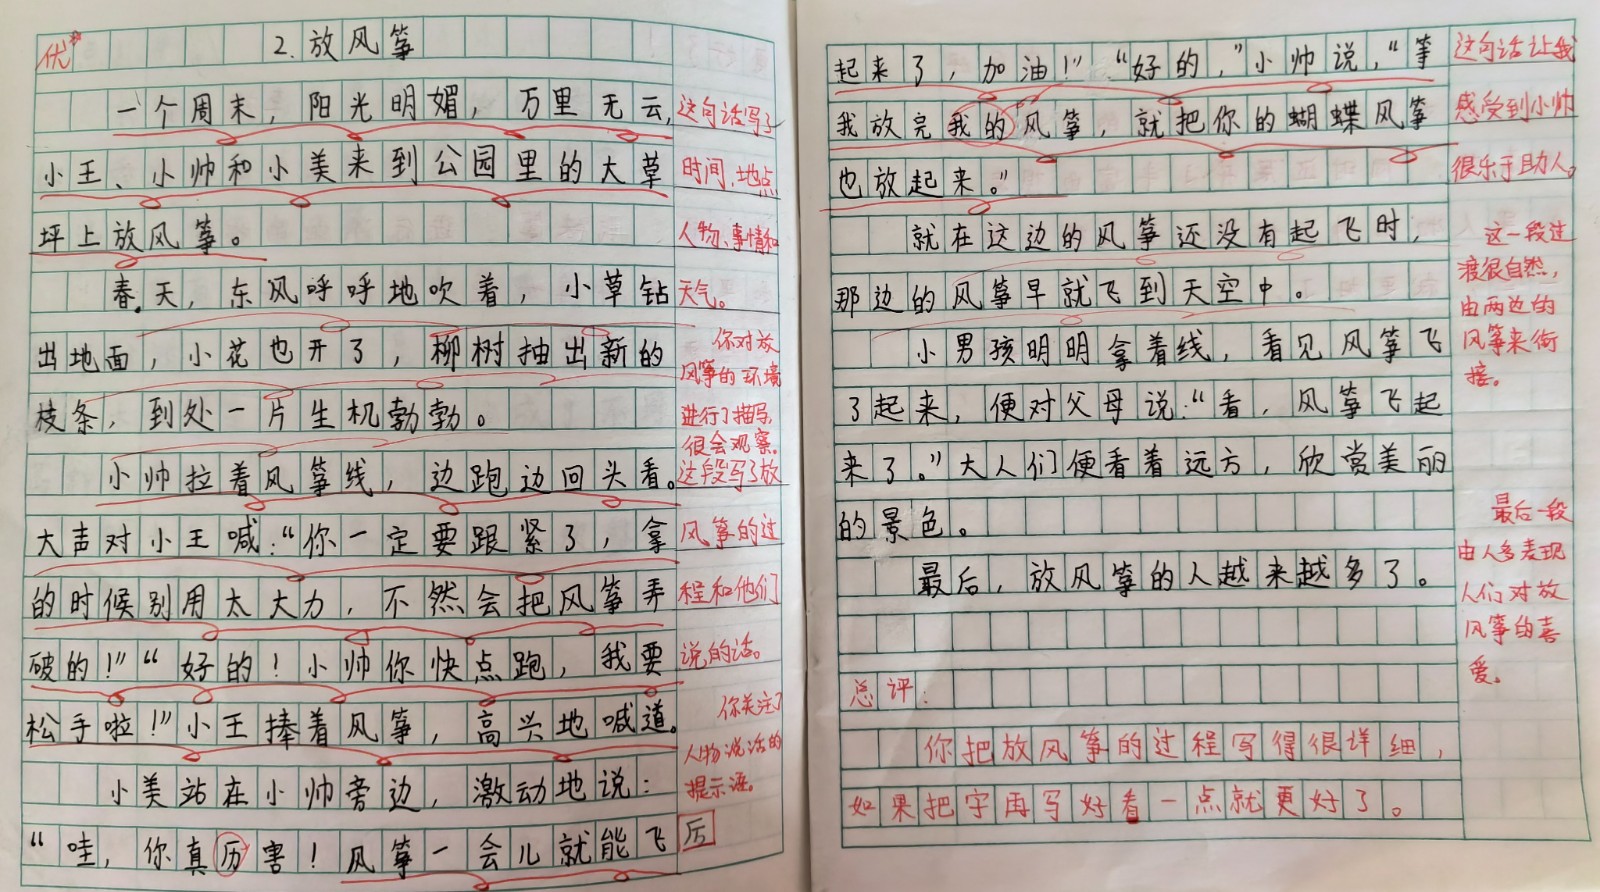 优
2.放风筝
一个周末，阳光明媚，万里无云，
小王、小帅和小美来到公园里的大草
坪上放风筝。
春天，东风呼呼地吹着，小草钻
出地面，小花也开了，柳树抽出新的
枝条，到处一片生机勃勃。
小帅拉着风筝线，边跑边回头看。
大声对小王喊：“你一定要跟紧了，拿
的时候别用太大力，不然会把风筝弄
破的！”“好的！小帅你快点跑，我要
松手啦！”小王捧着风筝，高兴地喊道。
小美站在小帅旁边，激动地说：
“哇，你真历害！风筝一会儿就能飞
这句话写了
时间、地点
人物、事情和
天气。
你对放
风筝的环境
进行了描写，
很会观察。
这段写了放
风筝的过
程和他们
说的话。
你关注了
人物说话的
提示语。
厉
起来了，加油！”“好的，”小帅说，“等
我放完我的风筝，就把你的蝴蝶风筝
也放起来。”
就在这边的风筝还没有起飞时，
那边的风筝早就飞到天空中。
小男孩明明拿着线，看见风筝飞
了起来，便对父母说：“看，风筝飞起
来了。”大人们便看着远方，欣赏美丽
的景色。
最后，放风筝的人越来越多了。
总评：
你把放风筝的过程写得很详细，
如果把字再写好看一点就更好了。
这句话让我
感受到小帅
很乐于助人。
这一段过
渡很自然，
由两边的
风筝来衔
接。
最后一段
由人多表现
人们对放
风筝的喜
爱。